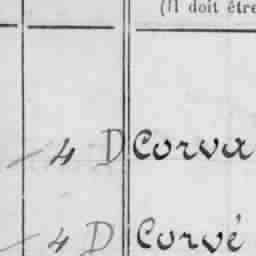 (Il doit être
- 4 D Corva
- 4 D Corvé